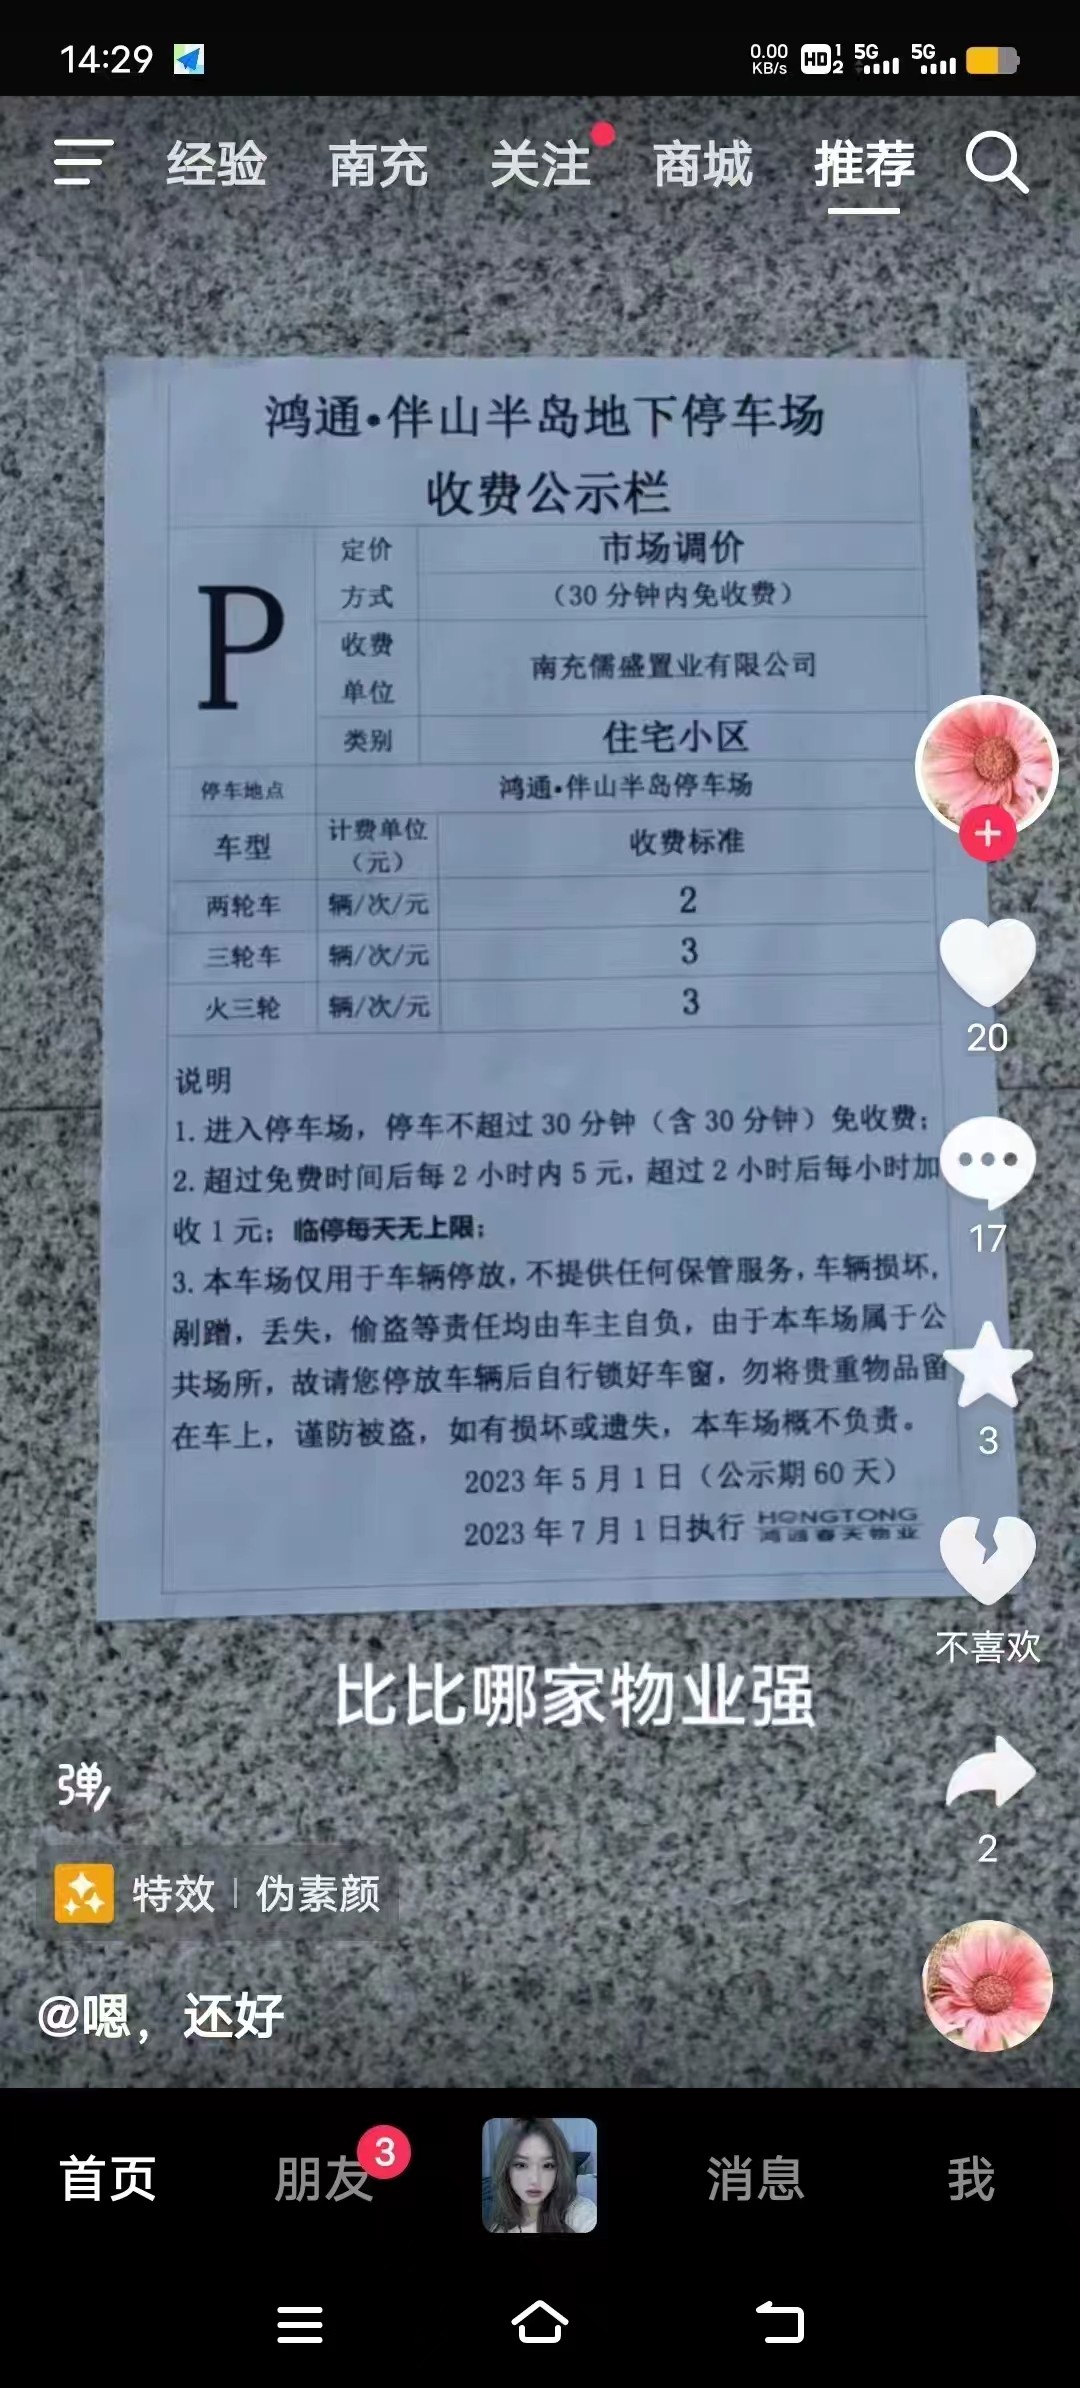 14:29
0.00
KB/s
HD
1
2
5G
5G
经验
南充
关注
商城
推荐
鸿通•伴山半岛地下停车场
收费公示栏
P
定价
方式
市场调价
（30 分钟内免收费）
收费
单位
南充儒盛置业有限公司
类别
住宅小区
停车地点
鸿通•伴山半岛停车场
车型
计费单位
（元）
收费标准
两轮车
辆/次/元
2
三轮车
辆/次/元
3
火三轮
辆/次/元
3
说明
1. 进入停车场，停车不超过 30 分钟（含 30 分钟）免收费；
2. 超过免费时间后每 2 小时内 5 元，超过 2 小时后每小时加
收 1 元；临停每天无上限；
3. 本车场仅用于车辆停放，不提供任何保管服务，车辆损坏，
剐蹭，丢失，偷盗等责任均由车主自负，由于本车场属于公
共场所，故请您停放车辆后自行锁好车窗，勿将贵重物品留
在车上，谨防被盗，如有损坏或遗失，本车场概不负责。
2023 年 5 月 1 日（公示期 60 天）
2023 年 7 月 1 日执行
HONGTONG
鸿通春天物业
20
17
3
不喜欢
2
比比哪家物业强
弹
特效
伪素颜
@嗯，还好
首页
朋友
3
消息
我